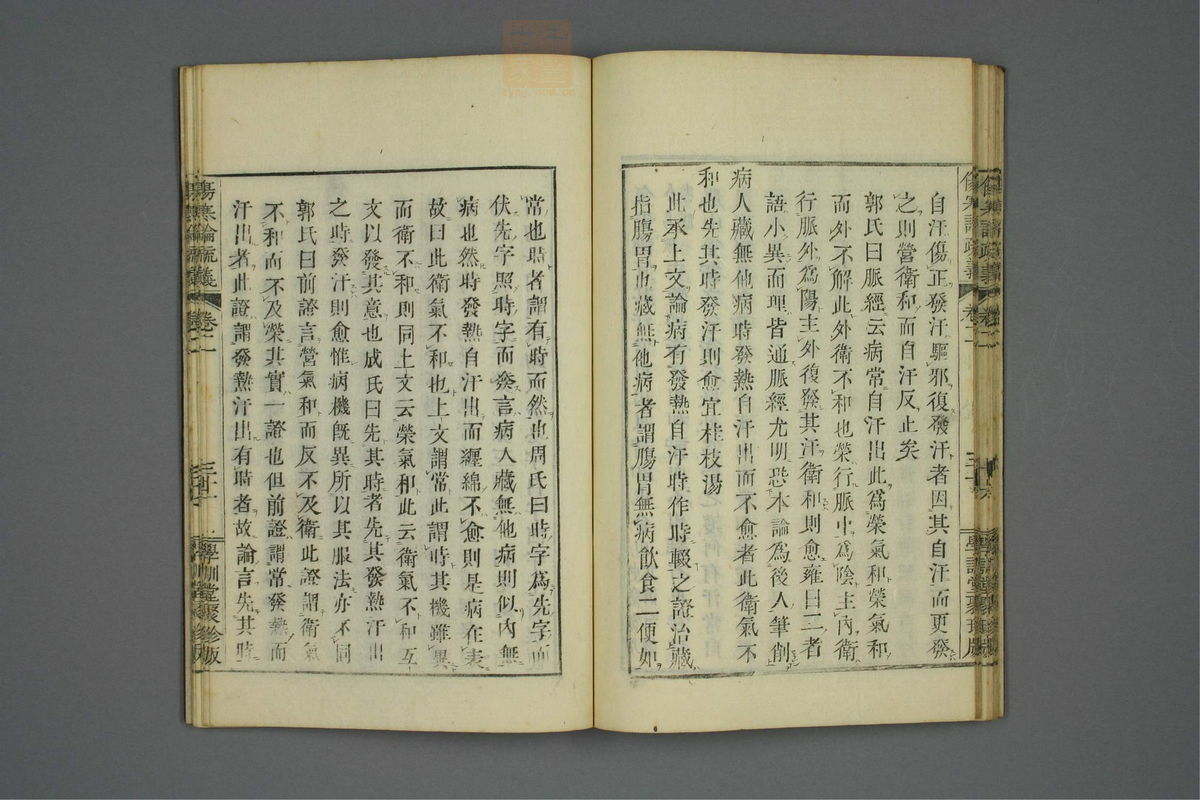 自汗傷正發汗驅邪復發汗者因其自汗而更發
之則營衛和而自汗反止矣
郭氏曰脈經云病常自汗出此爲榮氣和榮氣和
而外不解此外衛不和也榮行脈中爲陰主內衛
行脈外爲陽主外復發其汗衛和則愈雍曰二者
語小異而理皆通脈經尤明恐本論爲後人筆削
病人藏無他病時發熱自汗出而不愈者此衛氣不
和也先其時發汗則愈宜桂枝湯
此承上文論病有發熱自汗時作時輟之證治藏
指腸胃也藏無他病者謂腸胃無病飲食二便如
常也時者謂有時而然也周氏曰時字爲先字而
伏先字照時字而發言病人藏無他病則似內無
病也然時發熱自汗出而纏綿不愈則是病在表
故曰此衛氣不和也上文謂常此謂時其機雖異
而衛不和則同上文云榮氣和此云衛氣不和互
文以發其意也成氏曰先其時者先其發熱汗出
之時發汗則愈惟病機既異所以其服法亦不同
郭氏曰前證言營氣和而反不及衛此證謂衛氣
不和而不及榮其實一證也但前證謂常發熱而
汗出者此證謂發熱汗出有時者故論言先其時
傷寒論疏義 卷二 三十一 學訓堂聚珍版